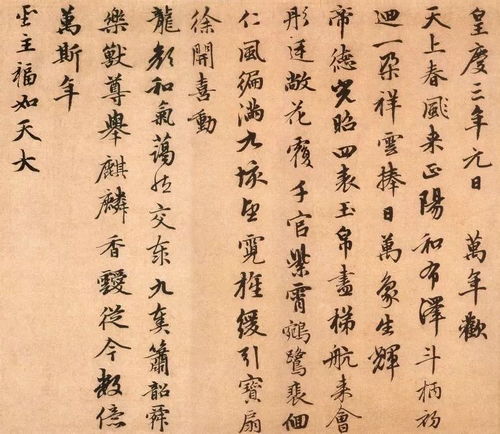 皇慶三年元日 萬年歡
天上春風来正陽和布澤斗柄初
迴一朵祥雲捧日萬象生輝
帝德光昭四表玉帛盡梯航来會
彤廷敞花覆千官紫霄鵷鷺裴徊
仁風徧滿九垓望霓旌緩引寶扇
徐開喜動
龍顏和氣藹然交泰九奏簫韶舜
樂獸尊舉麒麟香靉從今數億
萬斯年
聖主福如天大